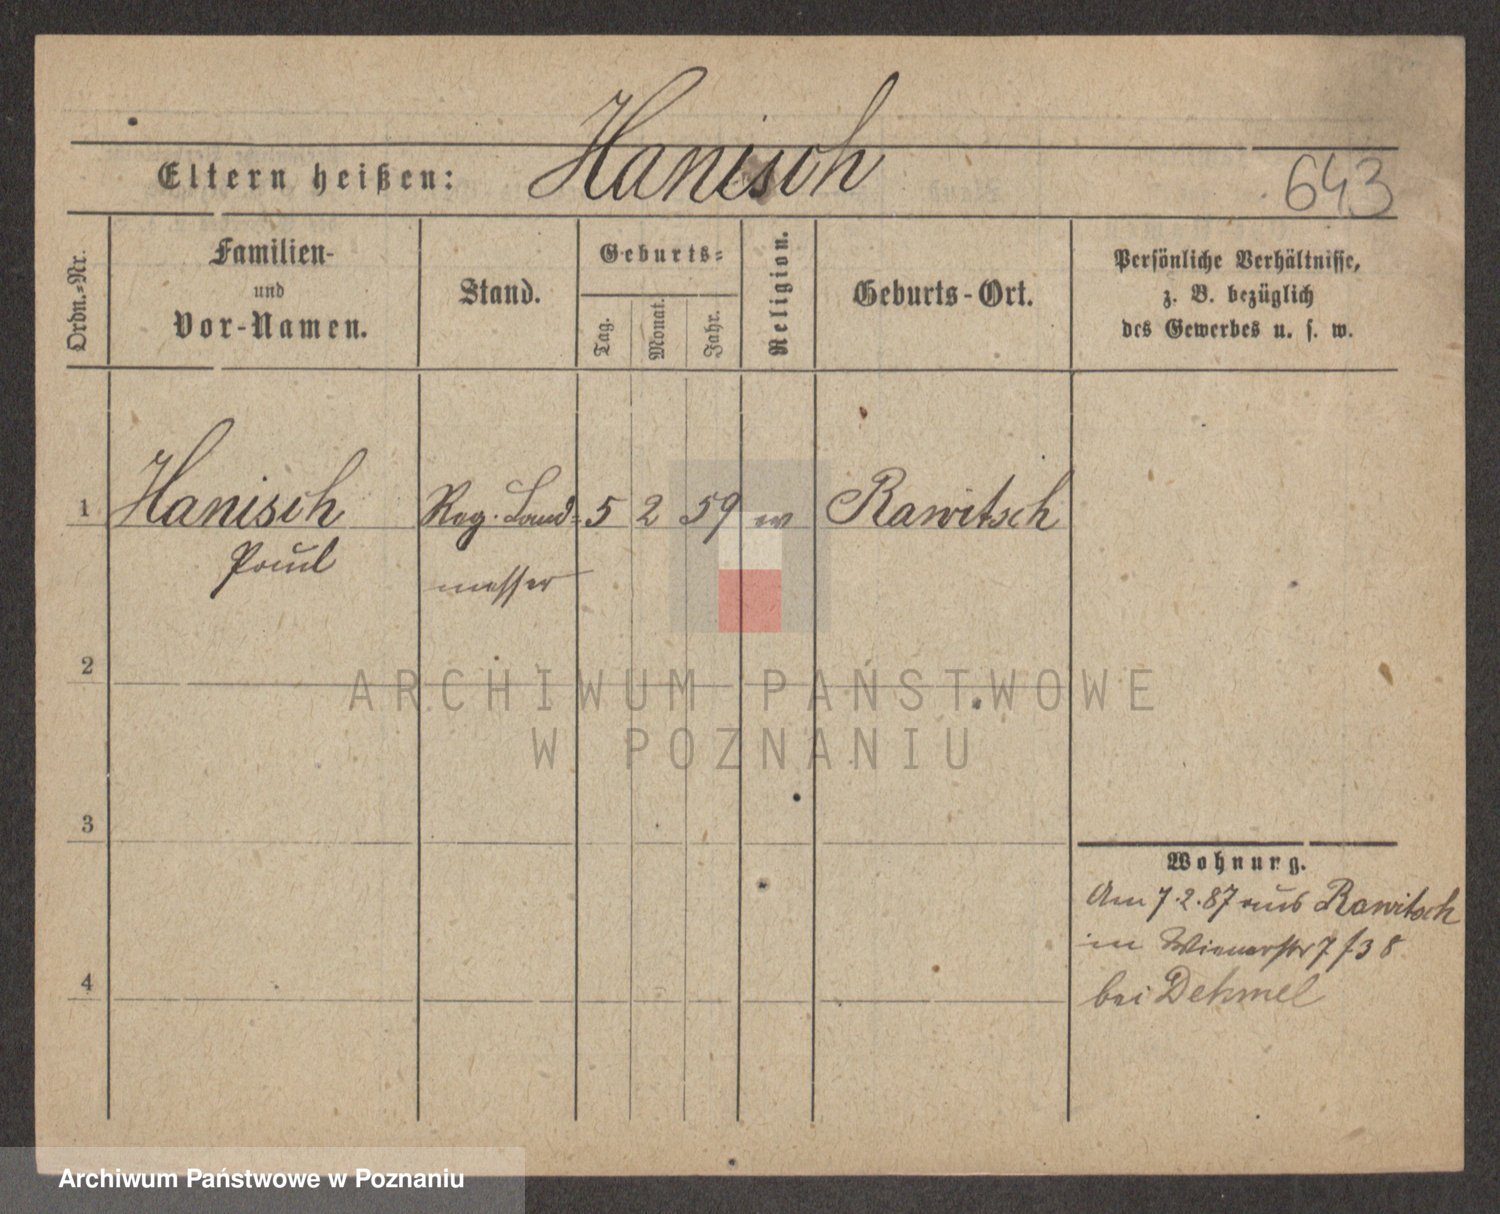 Hanisch
Eltern heißen:
643
Ordn.-Nr.
Familien-
und
Vor-Namen.
Stand.
Geburts-
Tag.
Monat.
Jahr.
Religion.
Geburts-Ort.
Persönliche Verhältnisse,
z. B. bezüglich
des Gewerbes u. s. w.
1 Hanisch Reg. Land- 5 2 59 ev Rawitsch
Paul messer
2
ARCHIWUM PAŃSTWOWE
W POZNANIU
3
Wohnung.
Am 7.2.87 aus Rawitsch
in Wienerstr 7/38
4
bei Dehmel
Archiwum Państwowe w Poznaniu